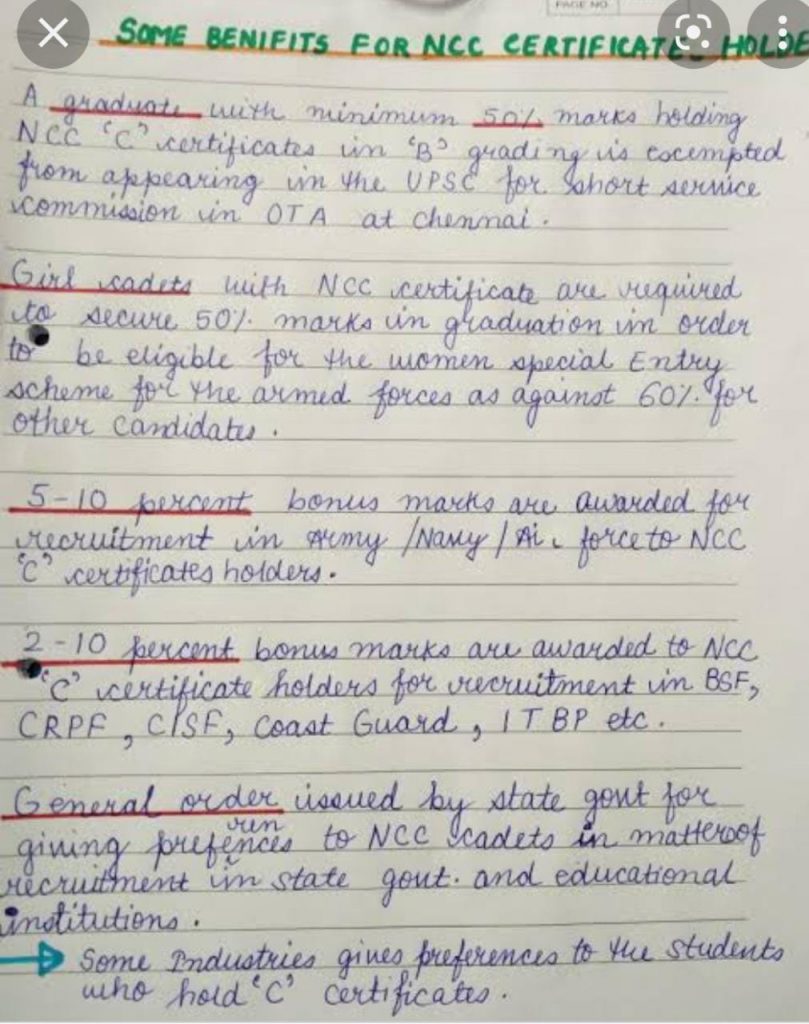 PAGE NO.
SOME BENIFITS FOR NCC CERTIFICATE HOLDE
A graduate with minimum 50% marks holding
NCC 'C' certificates in 'B' grading is excempted
from appearing in the UPSC for short service
commission in OTA at Chennai.
Girl cadets with NCC certificate are required
to secure 50% marks in graduation in order
to be eligible for the women special Entry
scheme for the armed forces as against 60% for
other candidates.
5-10 percent bonus marks are awarded for
recruitment in Army /Navy / Air force to NCC
'C' certificates holders.
2-10 percent bonus marks are awarded to NCC
'C' certificate holders for recruitment in BSF,
CRPF, CISF, Coast Guard, ITBP etc.
General order issued by state govt for
ren
giving prefences to NCC cadets in matter of
recruitment in state govt. and educational
institutions.
Some Industries gives preferences to the students
who hold 'C' certificates.